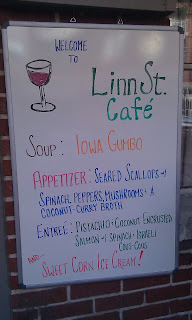 WELCOME
TO
LINN ST.
CAFÉ
SOUP: IOWA GUMBO
APPETIZER: SEARED SCALLOPS w/
SPINACH, PEPPERS, MUSHROOMS + A
COCONUT-CURRY BROTH
ENTREE: PISTACHIO + COCONUT ENCRUSTED
SALMON w/ SPINACH + ISRAELI
COUS-COUS
AND: SWEET CORN ICE CREAM!